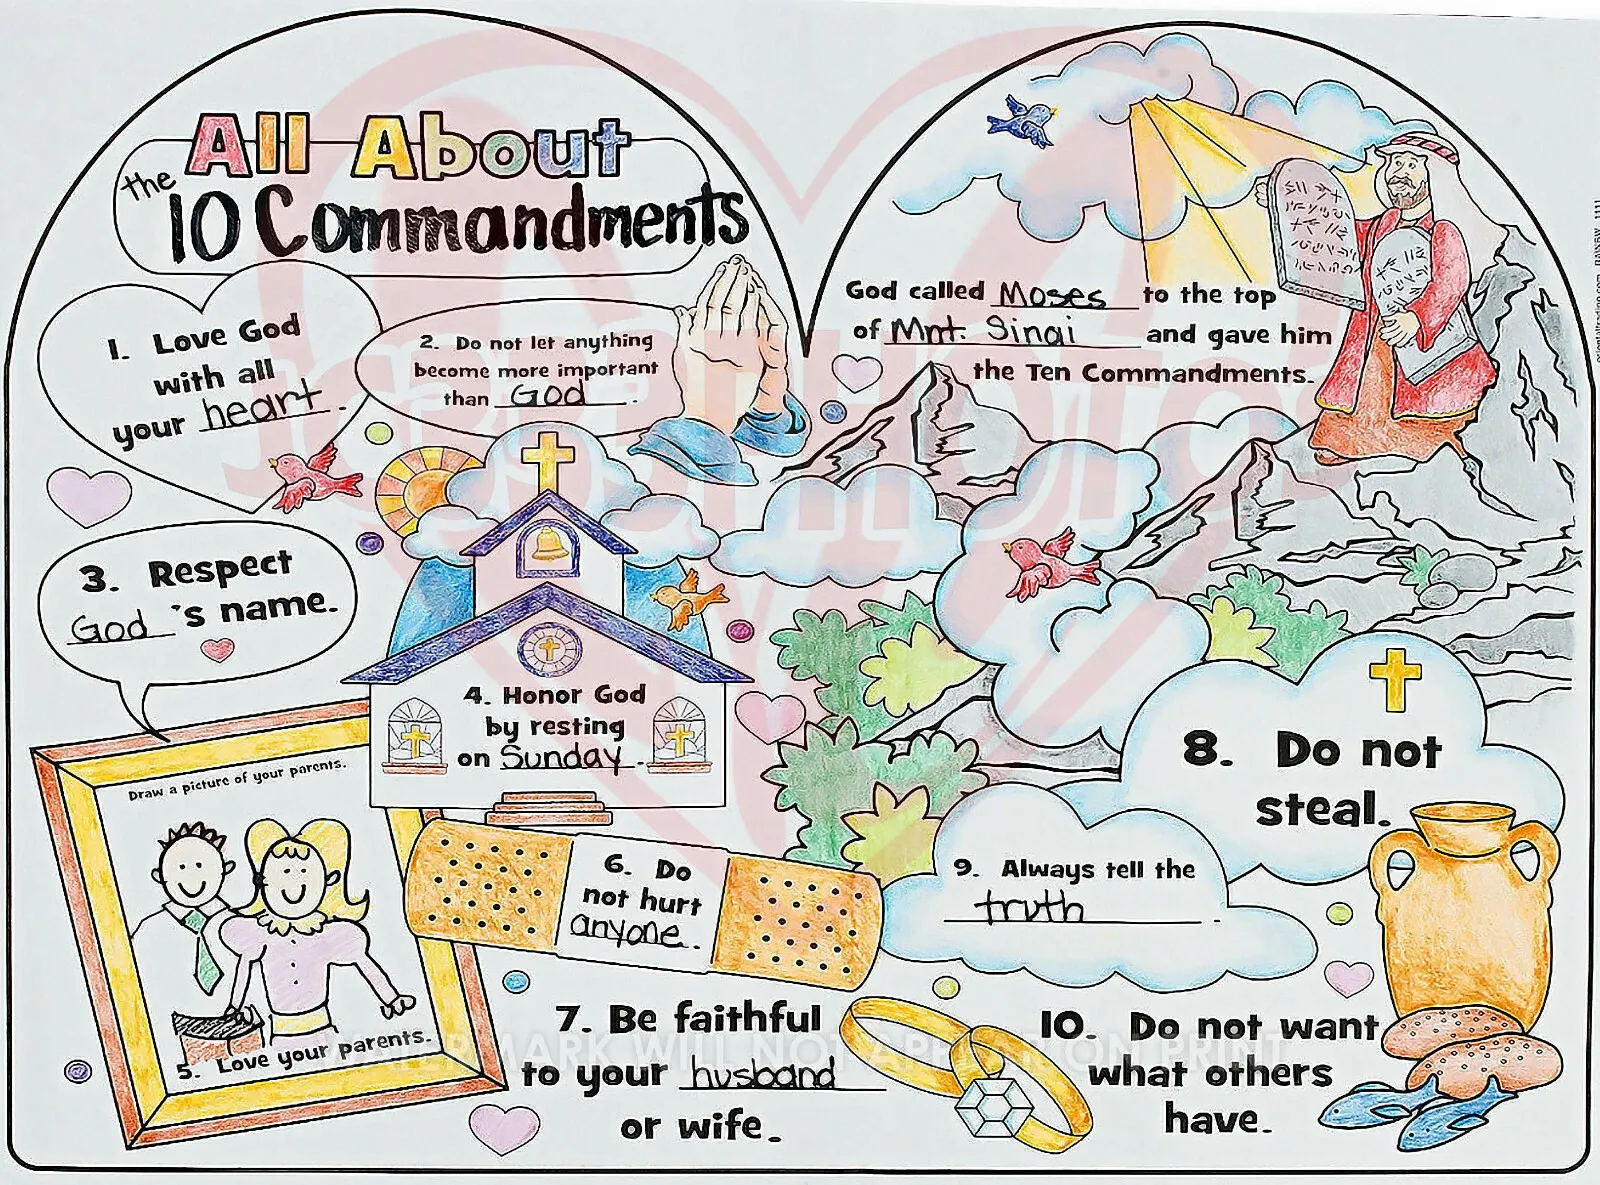 All About
the
10 Commandments
1. Love God
with all
your heart.
2. Do not let anything
become more important
than God.
3. Respect
God's name.
4. Honor God
by resting
on Sunday.
Draw a picture of your parents.
5. Love your parents.
6. Do
not hurt
anyone.
7. Be faithful
to your husband
or wife.
God called Moses to the top
of Mnt. Sinai and gave him
the Ten Commandments.
8. Do not
steal.
9. Always tell the
truth.
10. Do not want
what others
have.
WATERMARK WILL NOT APPEAR ON PRINT